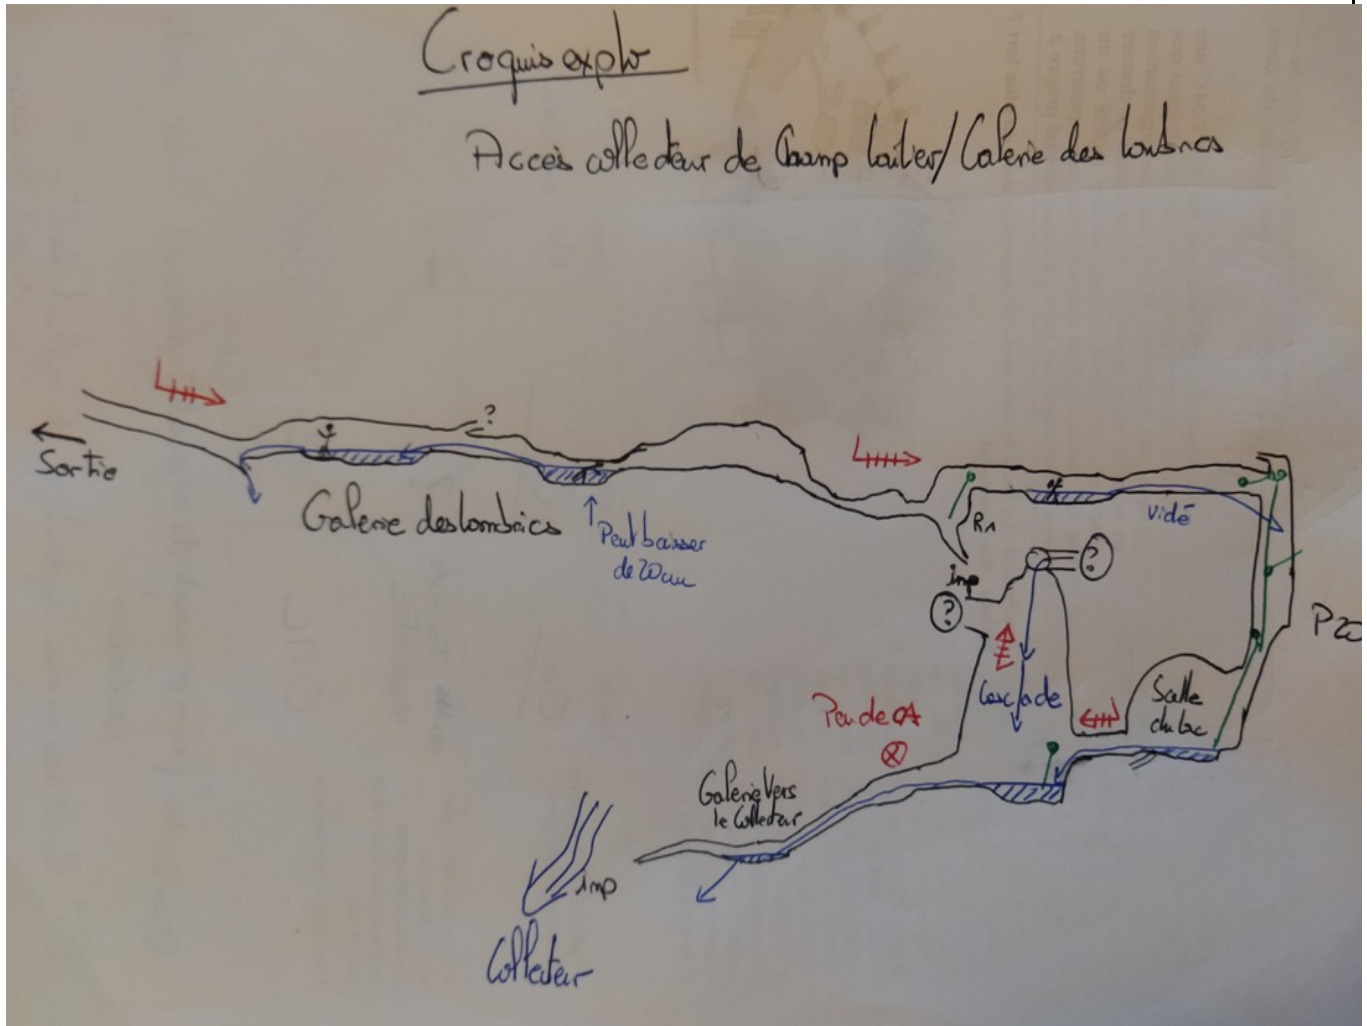 Croquis explo
Accès collecteur de Champ Laitier/Galerie des Lombrics
?
Sortie
Galerie des lombrics
Peut baisser
de 20cm
R1
vidé
imp
?
?
P20
Cascade
Salle
du lac
Galerie Vers
le Collecteur
imp
Collecteur